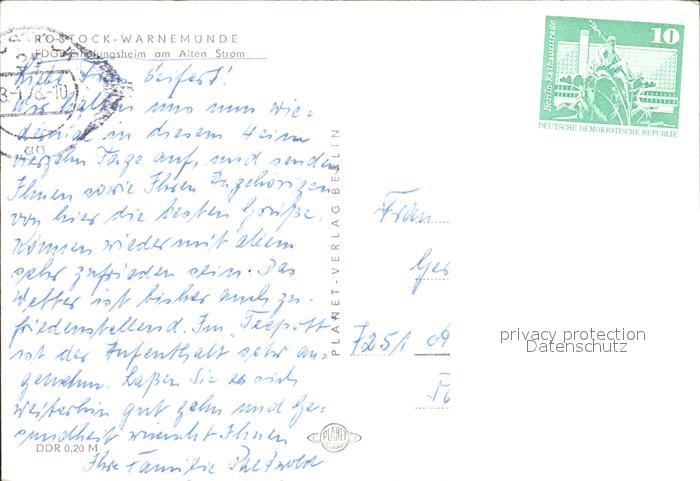 ROSTOCK-WARNEMÜNDE
FDGB-Erholungsheim am Alten Strom
Liebe Frau Seifert!
Wir halten uns nun wie-
derum in diesem Heim
vierzehn Tage auf, und senden
Ihnen sowie Ihren Angehörigen
von hier die besten Grüße.
Können wieder mit allem
sehr zufrieden sein. Das
Wetter ist bisher auch zu-
friedenstellend. Im "Teepott"
ist der Aufenthalt sehr an-
genehm. Laßen Sie es sich
weiterhin gut gehn und Ge-
sundheit wünscht Ihnen
Ihre Familie
DDR 0,20 M
PLANET-VERLAG BERLIN
PLANET
10
Berlin, Rathausstraße
DEUTSCHE DEMOKRATISCHE REPUBLIK
Frau
Ger
7251
privacy protection
Datenschutz